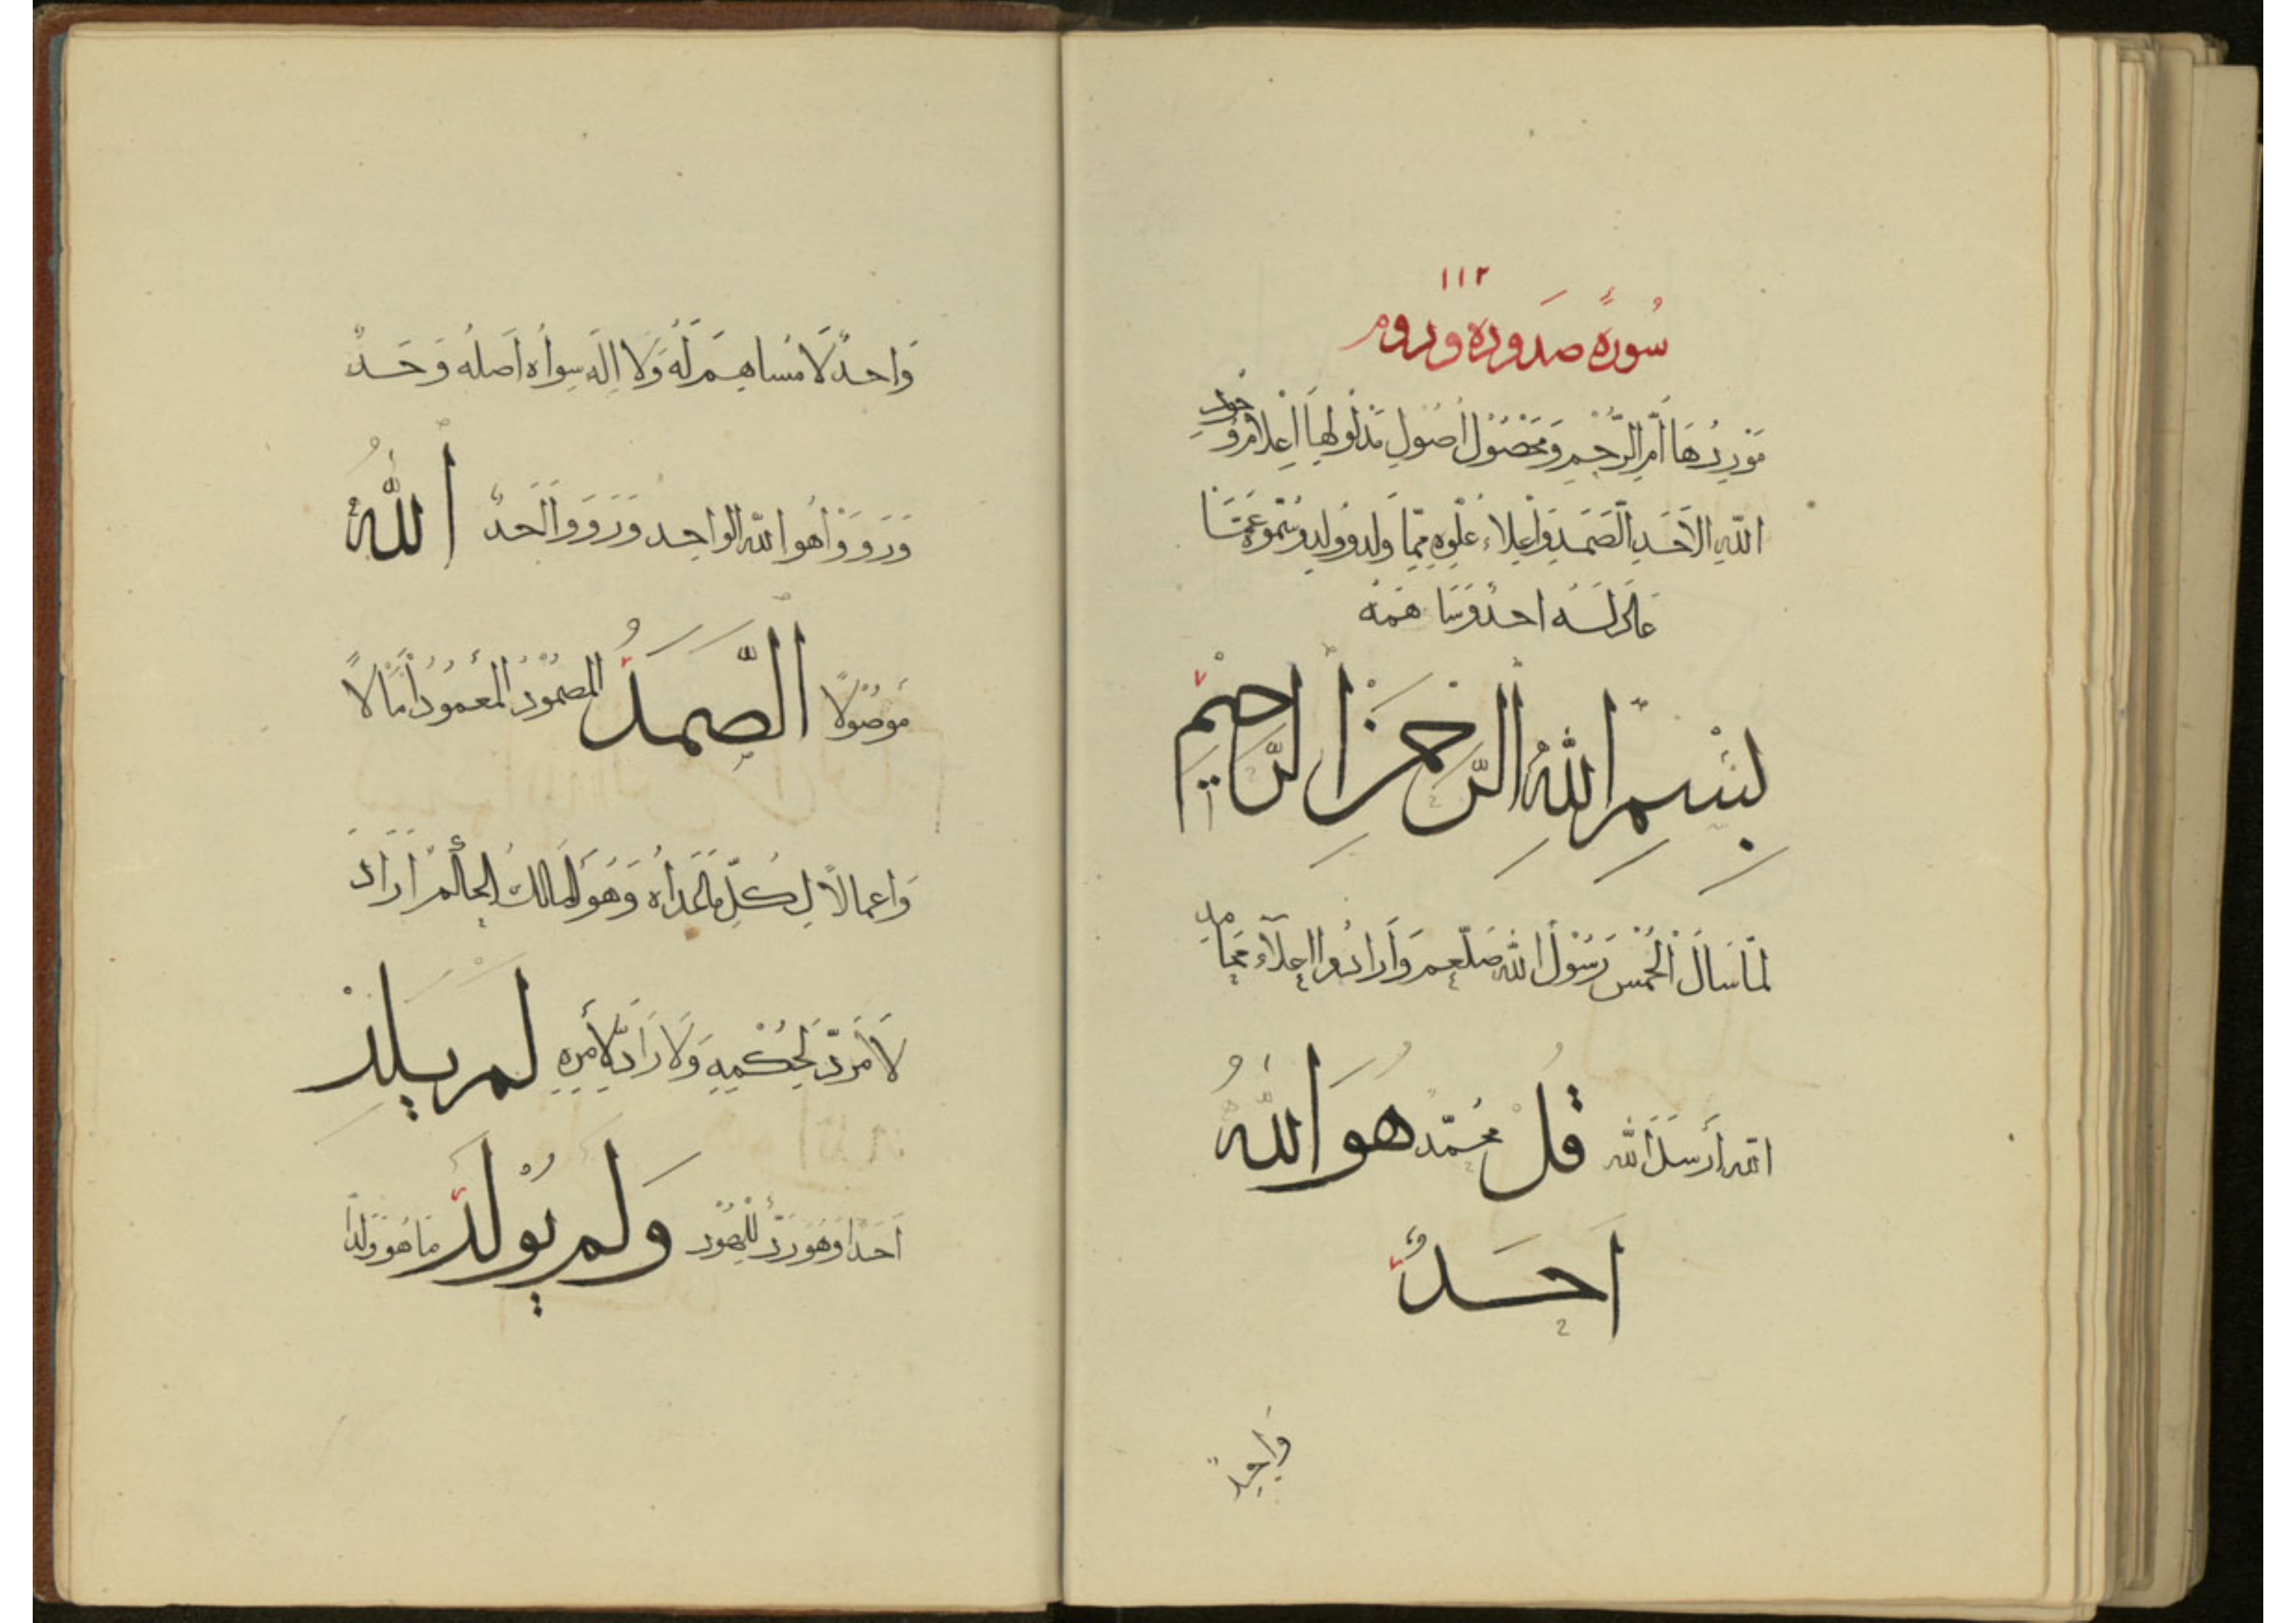 ١١٢
سُورَةٌ صَدَورِهٖ ورَوم
مَوْرِدُهَا أُمّ الرُّحْمِ وَمَحْصُوْلُ أُصُولِ مَدْلُولِهَا اِعْلَامُ وُحُودِ
اللّٰهِ الاَحَدِ الصَّمَدِ وَاِعْلَاءُ عُلُوِّهٖ مِمَّا وَلَدَ وَوُلِدَ وَسُمُوِّهٖ عَمَّا
احدٌ وَسَاهَمَهُ
بِسْمِ اللّٰهِ الرَّحْمٰنِ الرَّحِيْمِ
لَمَّا سَالَ الْحُمْسُ رَسُوْلَ اللّٰهِ صَلَّعَم وَاَرَادُوا اِعْلَآءَ مَحَامِدِ
اللّٰه اَرْسَلَ اللّٰه قُلْ مُحَمَّد هُوَ اللّٰهُ
اَحَدٌ
وَاحِدٌ
وَاحدٌ لَا مُسَاهِمَ لَهُ وَلَا اِلٰهَ سِوَاهُ اَصْلُه وَحَدٌ
وَرَوَوْا هُوَ اللّٰه الوَاحِد وَرَوَوا الَحدُ اَللّٰهُ
مَوصُولًا الصَّمَدُ المَصْمُوْدُ المَعْمُوْدُ اٰمَالًا
وَاَعمالًا لِكُلِّ مَا عَدَاهُ وَهُوَ المَالِكُ الحَاكمُ اَرَادَ
لَا مَرَدَّ لِحُكْمِهٖ وَلَا رَادَّ لِاَمْرِهٖ لَمْ يَلِدْ
اَحَدًا وَهُوَ رَدٌّ لِلْهُوْد وَلَمْ يُوْلَدْ مَا هُوَ وَلَدًا